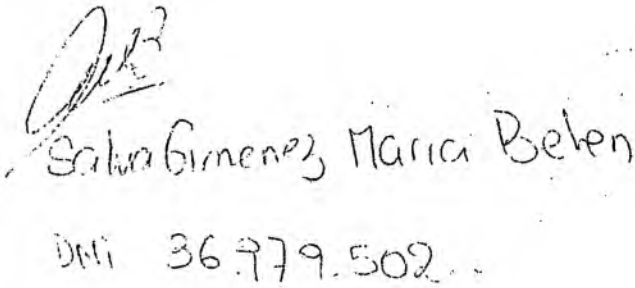 Salva Gimenez, Maria Belen
DNI 36.979.502